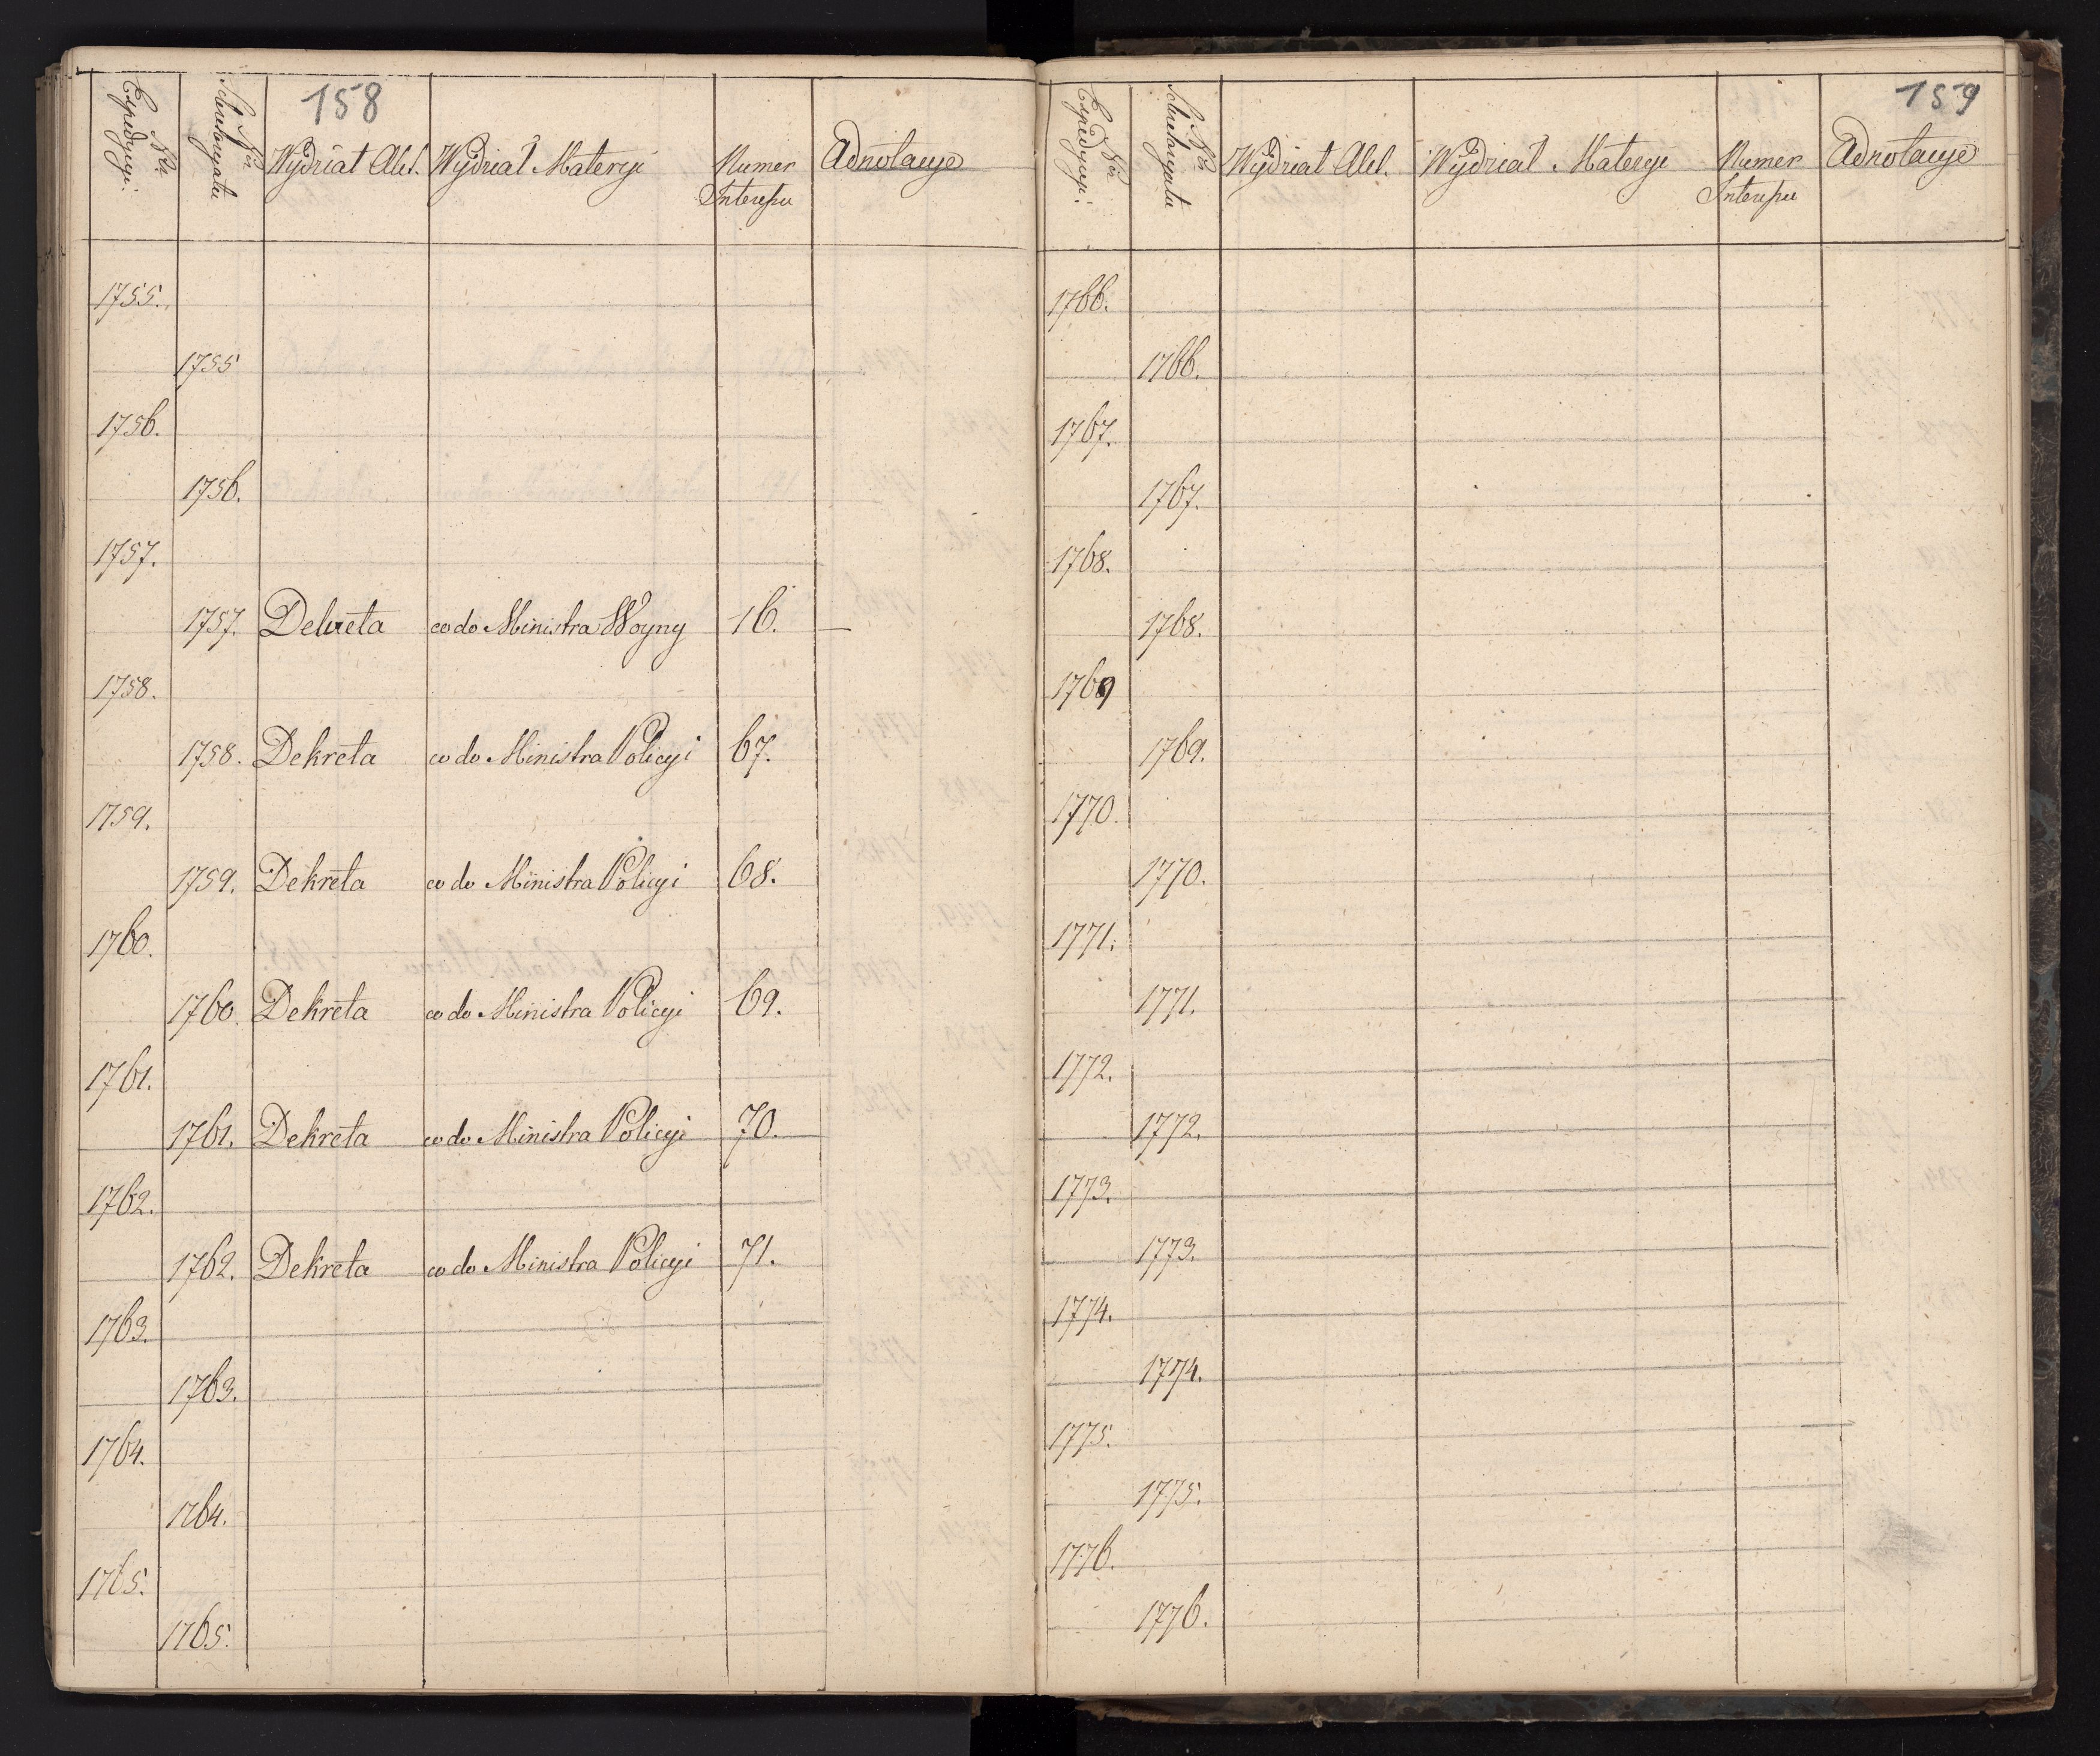 158
Nro Expedycyi. Nro Sekretaryatu Wydział Akt. Wydział Materyi Numer Interesu Adnotacye
1755.
1755
1756.
1756.
1757.
1757. Dekreta co do Ministra Woyny 16. —
1758.
1758. Dekreta co do Ministra Policyi 67.
1759.
1759. Dekreta co do Ministra Policyi 68.
1760.
1760. Dekreta co do Ministra Policyi 69.
1761.
1761. Dekreta co do Ministra Policyi 70.
1762.
1762. Dekreta co do Ministra Policyi 71.
1763.
1763.
1764.
1764.
1765.
1765.
159
Nro Expedycyi. Nro Sekretaryatu Wydział Akt. Wydział Materyi Numer Interesu Adnotacye
1766.
1766.
1767.
1767.
1768.
1768.
1769
1769.
1770.
1770.
1771.
1771.
1772.
1772.
1773.
1773.
1774.
1774.
1775.
1775.
1776.
1776.